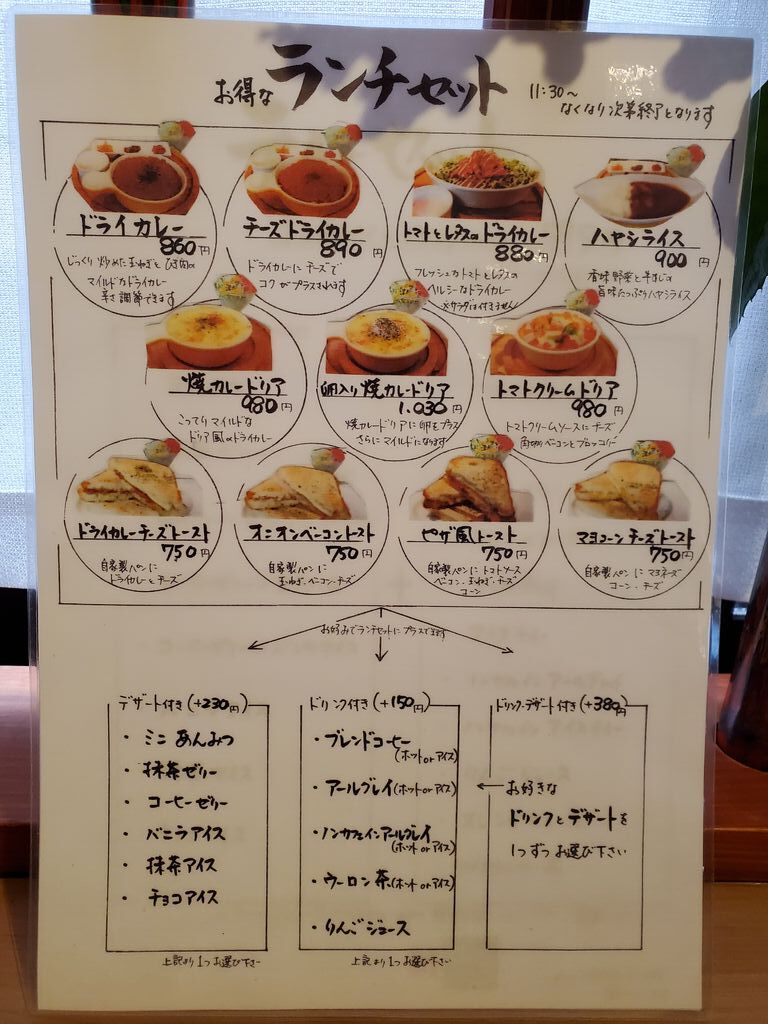 お得な ランチセット 11:30～
なくなり次第終了となります
ドライカレー
860円
じっくり炒めた玉ねぎとひき肉の
マイルドなドライカレー
辛さ調節できます
チーズドライカレー
890円
ドライカレーにチーズで
コクがプラスされます
トマトとレタスのドライカレー
880円
フレッシュなトマトとレタスの
ヘルシーなドライカレー
※サラダは付きません
ハヤシライス
900円
香味野菜と牛すじの
旨味たっぷりハヤシライス
焼カレードリア
980円
こってりマイルドな
ドリア風のドライカレー
卵入り焼カレードリア
1,030円
焼カレードリアに卵をプラス
さらにマイルドになります
トマトクリームドリア
980円
トマトクリームソースにチーズ
角切りベーコンとブロッコリー
ドライカレーチーズトースト
750円
自家製パンに
ドライカレーとチーズ
オニオンベーコントースト
750円
自家製パンに
玉ねぎ・ベーコン・チーズ
ピザ風トースト
750円
自家製パンにトマトソース
ベーコン・玉ねぎ・チーズ
コーン
マヨコーンチーズトースト
750円
自家製パンにマヨネーズ
コーン・チーズ
お好みでランチセットにプラスできます
デザート付き(+230円)
・ミニあんみつ
・抹茶ゼリー
・コーヒーゼリー
・バニラアイス
・抹茶アイス
・チョコアイス
上記より1つお選び下さい
ドリンク付き(+150円)
・ブレンドコーヒー
(ホットorアイス)
・アールグレイ(ホットorアイス)
・ノンカフェインアールグレイ
(ホットorアイス)
・ウーロン茶(ホットorアイス)
・りんごジュース
上記より1つお選び下さい
ドリンク・デザート付き(+380円)
←お好きな
ドリンクとデザートを
1つずつお選び下さい